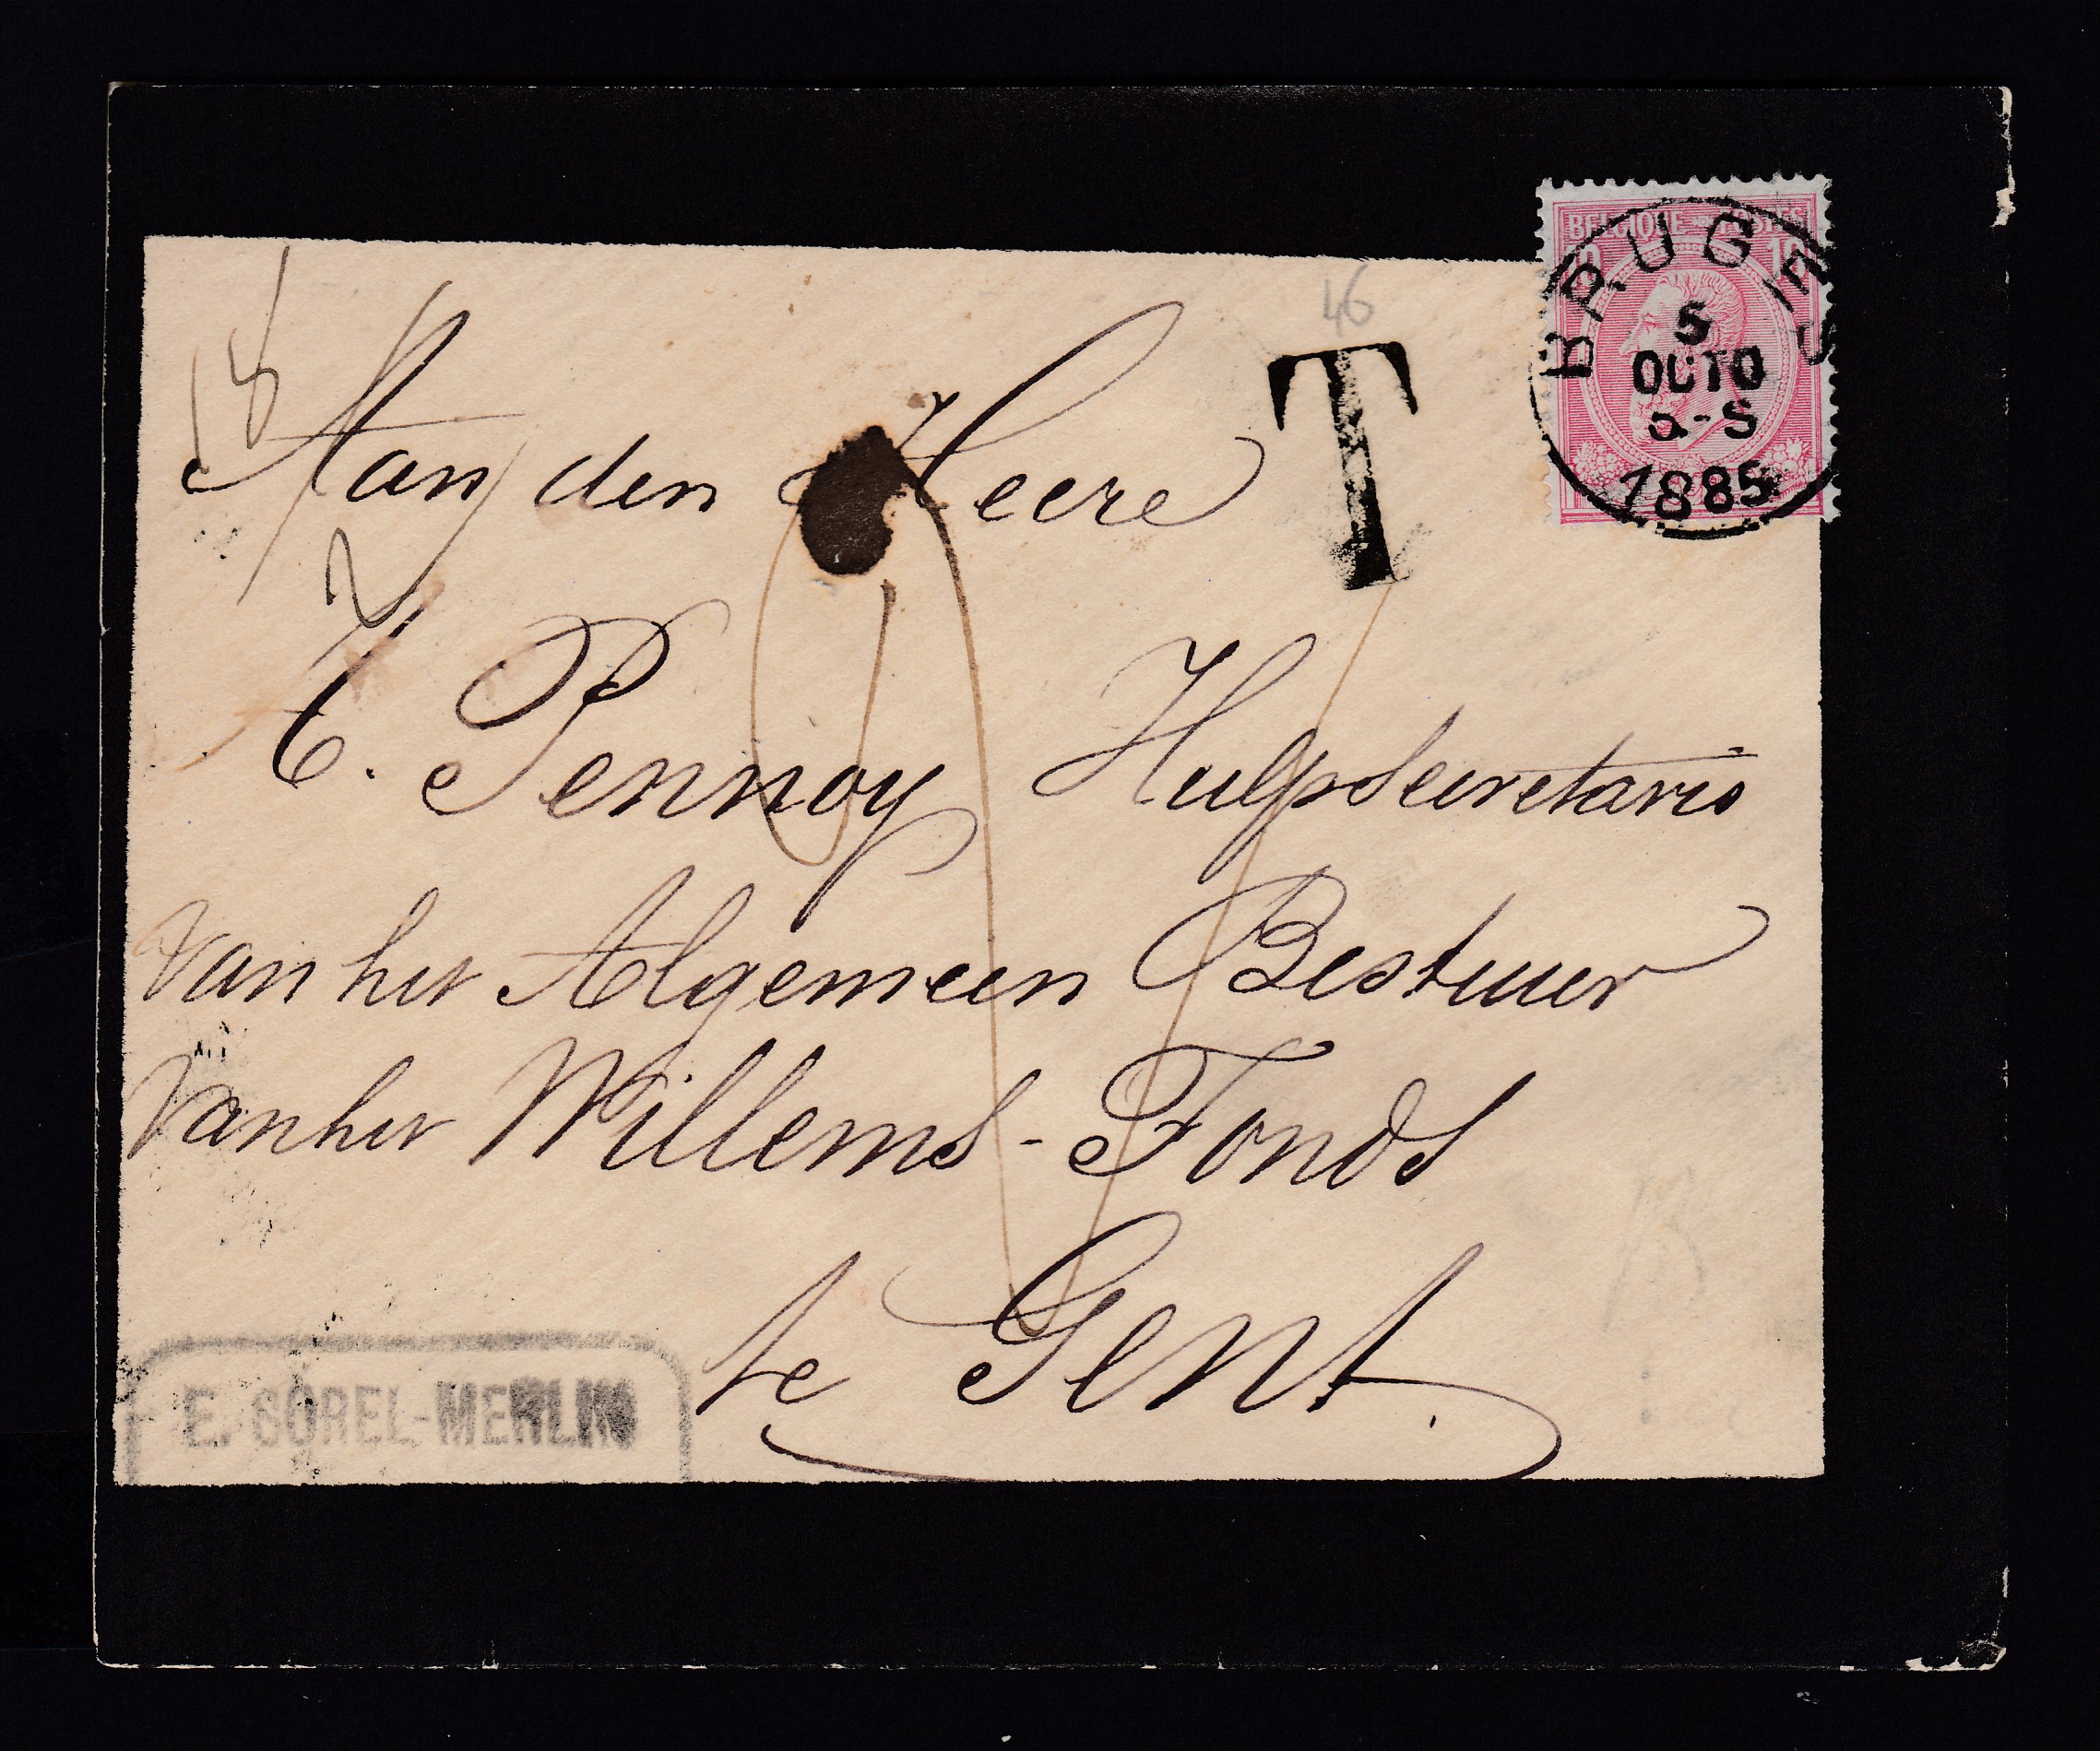 BELGIQUE POSTES
10
BRUGES
5
OCTO
1885
46
T
18
Aan den Heere
E. Pennoy Hulpsecretaris
van het Algemeen Bestuur
van het Willems-Fonds
te Gent.
E. SOREL-MERLIN